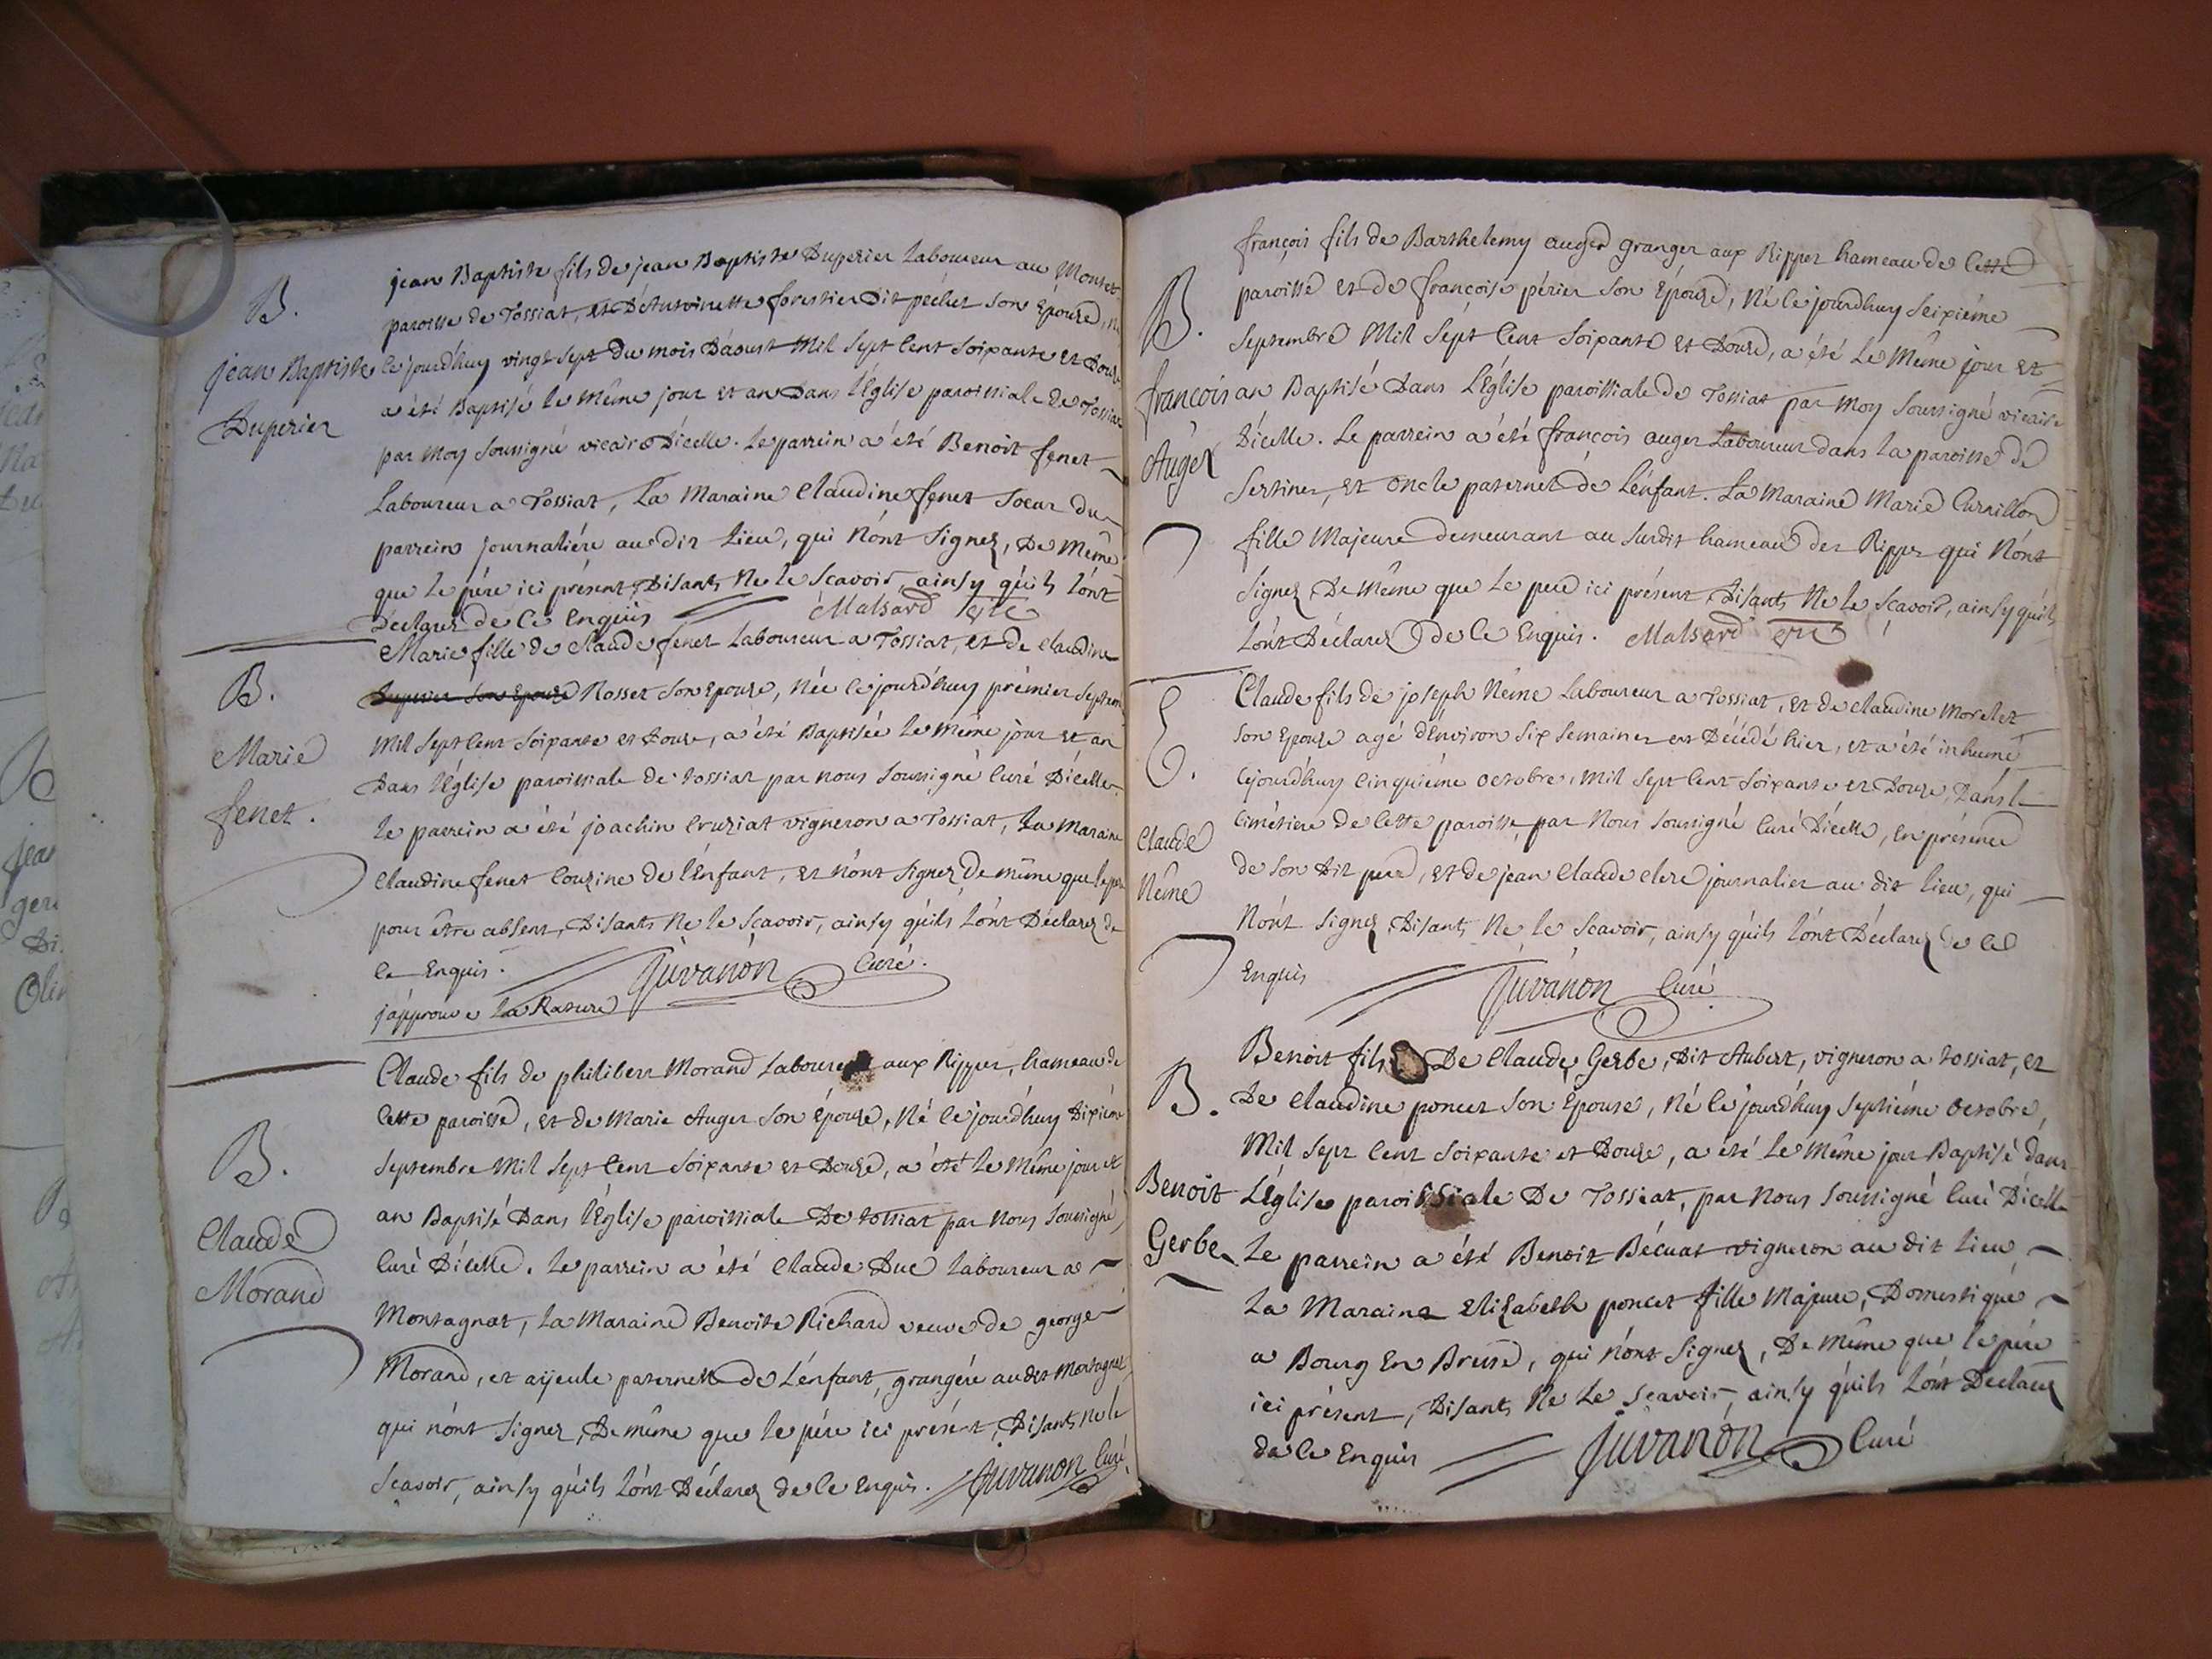 B.
jean Baptiste
Duperier
jean Baptiste fils de jean Baptiste Duperier Laboureur au
paroisse de Tossiat, et D'Antoinette forestier Dit péchet son Epouze, né
le jourd'huy vingt sept du mois D'aoust Mil sept Cent soixante et Douze
a été Baptisé le même jour et an Dans l'Eglise paroissiale de Tossiat
par moy soussigné vicaire D'icelle. le parrein a été Benoit fenet
Laboureur a Tossiat, La Maraine Claudine fenet soeur du
parrein journaliére au dit Lieu, qui n'ónt signez, De Même
que le pére ici présent, Disants Ne le Scavoir, ainsy qu'ils l'ónt
Déclarez de Ce Enquis Malsard vic
B.
Marie
fenet.
Marie fille de Claude fenet Laboureur a Tossiat, et de Claudine
Duperier son Epouze Rosset son Epouze, née Cejourd'huy prémier septem
Mil sept Cent soixante et Douze, a été Baptisée le même jour et an
Dans l'Eglise paroissiale de Tossiat par nous soussigné Curé D'icelle.
le parrein a été joachin Cruziat vigneron a Tossiat, La Maraine
Claudine fenet Couzine de l'Enfant, et n'ont signez De même que le pere
pour être absent, Disants Ne le Scavoir, ainsy qu'ils l'ónt Déclarez de
Ce Enquis. Juvanon Curé.
j'approuve la Rature
B.
Claude
Morand
Claude fils de philibert Morand Laboureur aux Rippes, hameau de
Cette paroisse, et de Marie Auger son Epouze, Né Cejourd'huy Dixiéme
septembre Mil sept Cent soixante et Douze, a été le Même jour et
an Baptisé Dans l'Eglise paroissiale De Tossiat par Nous soussigné
Curé D'icelle. le parrein a été Claude Duc Laboureur a
Montagnat, la Maraine Benoite Richard veuve de george
Morand, et aÿeule paternelle de l'enfant, grangére audit Montagnat
qui n'ónt signez, De même que le pére ici présent, Disants ne le
Scavoir, ainsy qu'ils l'ónt Déclarez de Ce Enquis. Juvanon Curé
B.
françois
Auger
françois fils de Barthelemy auger granger aux Rippes hameau de Cette
paroisse et de françoise périer son Epouze, Né le jourdhuy seixiéme
septembre Mil sept Cent soixante et Douze, a été Le Même jour et
an Baptisé Dans L'Eglise paroissiale de Tossiat par moy soussigné vicaire
D'icelle. Le parrein a été françois auger Laboureur dans la paroisse de
Sertines, et oncle paternel de l'énfant. La Maraine Marie Curnillon
fille Majeure demeurant au susdit hameau des Rippes qui N'ónt
signez De même que le pere ici présent Disants Ne le Scavoir, ainsy qu'ils
L'ónt Déclarez de Ce Enquis. Malsard vic
E.
Claude
Néme
Claude fils de joseph Néme Laboureur a Tossiat, et de Claudine Morelet
son Epouze agé d'Environ six semaines est Décédé hier, et a été inhumé
Cejourd'huy Cinquiéme octobre, Mil sept Cent soixante et Douze, Dans le
Cimétiere de Cette paroisse, par Nous soussigné Curé D'icelle, en présence
de son Dit pere, et de jean Claude Clerc journalier au dit lieu, qui
N'ónt signez, Disants Ne le Scavoir, ainsy qu'ils l'ónt Déclarez de Ce
Enquis Juvanon Curé
B.
Benoit
Gerbe
Benoit fils De Claude Gerbe, Dit Aubert, vigneron a Tossiat, et
De Claudine poncet son Epouse, Né le jourd'huy septiéme octobre,
Mil sept Cent soixante et Douze, a été le Même jour Baptisé dans
L'Eglise paroissiale De Tossiat, par Nous soussigné Curé D'icelle
le parrein a été Benoit Bécuat vigneron au dit lieu
La Maraine Elizabeth poncet fille Majeure, Domestique
a Bourg En Bresse, qui n'ónt signez, De même que le pére
ici présent, Disants Ne Le Scavoir, ainsy qu'ils l'ónt Declarez
de Ce Enquis Juvanon Curé